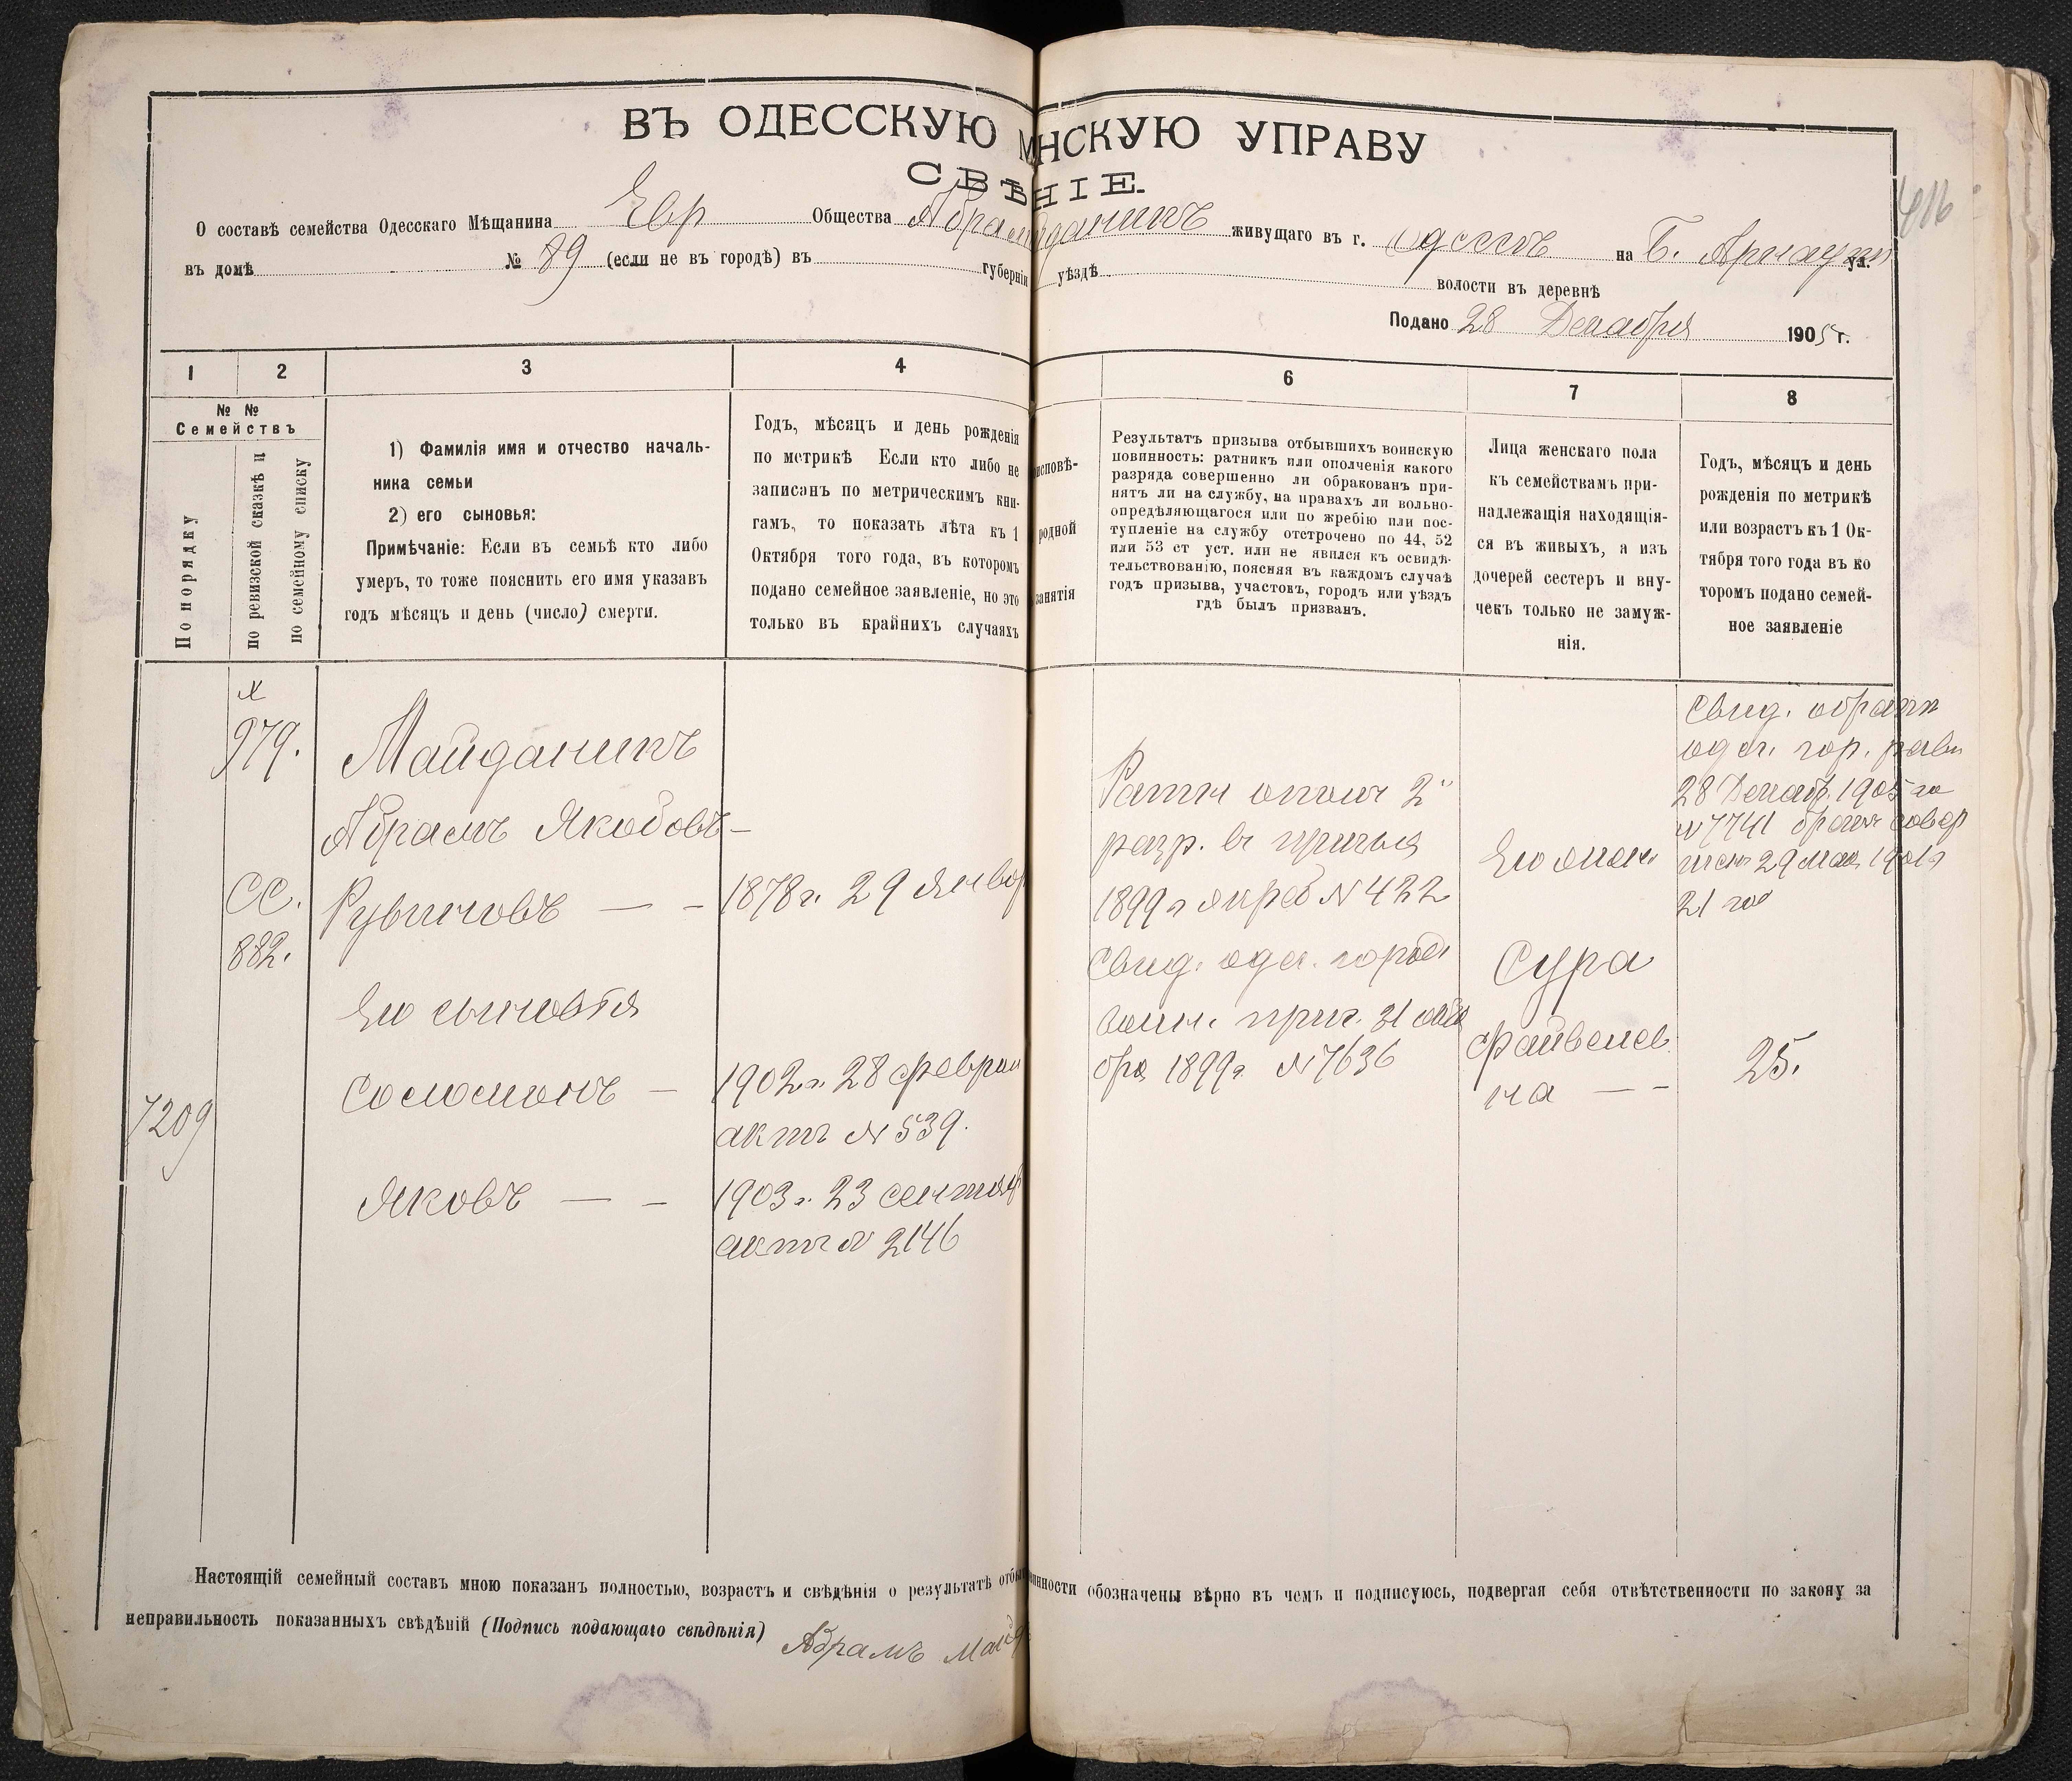 ВЪ ОДЕССКУЮ М НСКУЮ УПРАВУ
СВѢ НІЕ.
О составѣ семейства Одесскаго Мѣщанина Евр Общества Абрам йданикъ живущаго въ г. Одессѣ на Б. Арнаутск ул.
въ домѣ № 89 (если не въ городѣ) въ губерніи уѣздѣ волости въ деревнѣ
Подано 28 Декабря 1905 г.
416
1 2 3 4 6 7 8
№ №
Семействъ
По порядку
по ревизской сказкѣ и
по семейному списку
1) Фамилія имя и отчество началь-
ника семьи
2) его сыновья:
Примѣчаніе: Если въ семьѣ кто либо
умеръ, то тоже пояснить его имя указавъ
годъ мѣсяцъ и день (число) смерти.
Годъ, мѣсяцъ и день рожденія
по метрикѣ Если кто либо не
записанъ по метрическимъ кни-
гамъ, то показать лѣта къ 1
Октября того года, въ которомъ
подано семейное заявленіе, но это
только въ крайнихъ случаяхъ
исповѣ-
родной
занятія
Результатъ призыва отбывшихъ воинскую
повинность: ратникъ или ополченія какого
разряда совершенно ли обракованъ при-
нятъ ли на службу, на правахъ ли вольно-
опредѣляющагося или по жребію или пос-
тупленіе на службу отстрочено по 44, 52
или 53 ст уст. или не явился къ освидѣ-
тельствованію, поясняя въ каждомъ случаѣ
годъ призыва, участокъ, городъ или уѣздъ
гдѣ былъ призванъ.
Лица женскаго пола
къ семействамъ при-
надлежащія находящія-
ся въ живыхъ, а изъ
дочерей сестеръ и вну-
чекъ только не замуж-
нія.
Годъ, мѣсяцъ и день
рожденія по метрикѣ
или возрастъ къ 1 Ок-
тября того года въ ко
торомъ подано семей-
ное заявленіе
979.
СС.
882.
7209
Майданикъ
Абрамъ Якобовъ —
Рувиновъ — —
Его сыновья
Соломонъ —
Яковъ — —
1878 г. 29 Январ
1902 г. 28 Феврал
актъ № 539.
1903 г. 23 Сентяб
актъ № 2146
Ратн ополч 2
разр. въ призыв
1899 г жреб № 422
Свид. одес. город
воин. прис. 31 октя
бря 1899 г. № 7636
Его жена
Сура
Файвелев
на — —
Свид.
одес. гор. равв
28 Декаб. 1905 го
№ 7741 бракъ совер
шенъ 29 мая 1901 г
21 го
25.
Настоящій семейный составъ мною показанъ полностью, возрастъ и свѣдѣнія о результатѣ отбы инности обозначены вѣрно въ чемъ и подписуюсь, подвергая себя отвѣтственности по закону за
неправильность показанныхъ свѣдѣній (Подпись подающаго свѣдѣнія) Абрамъ Майд